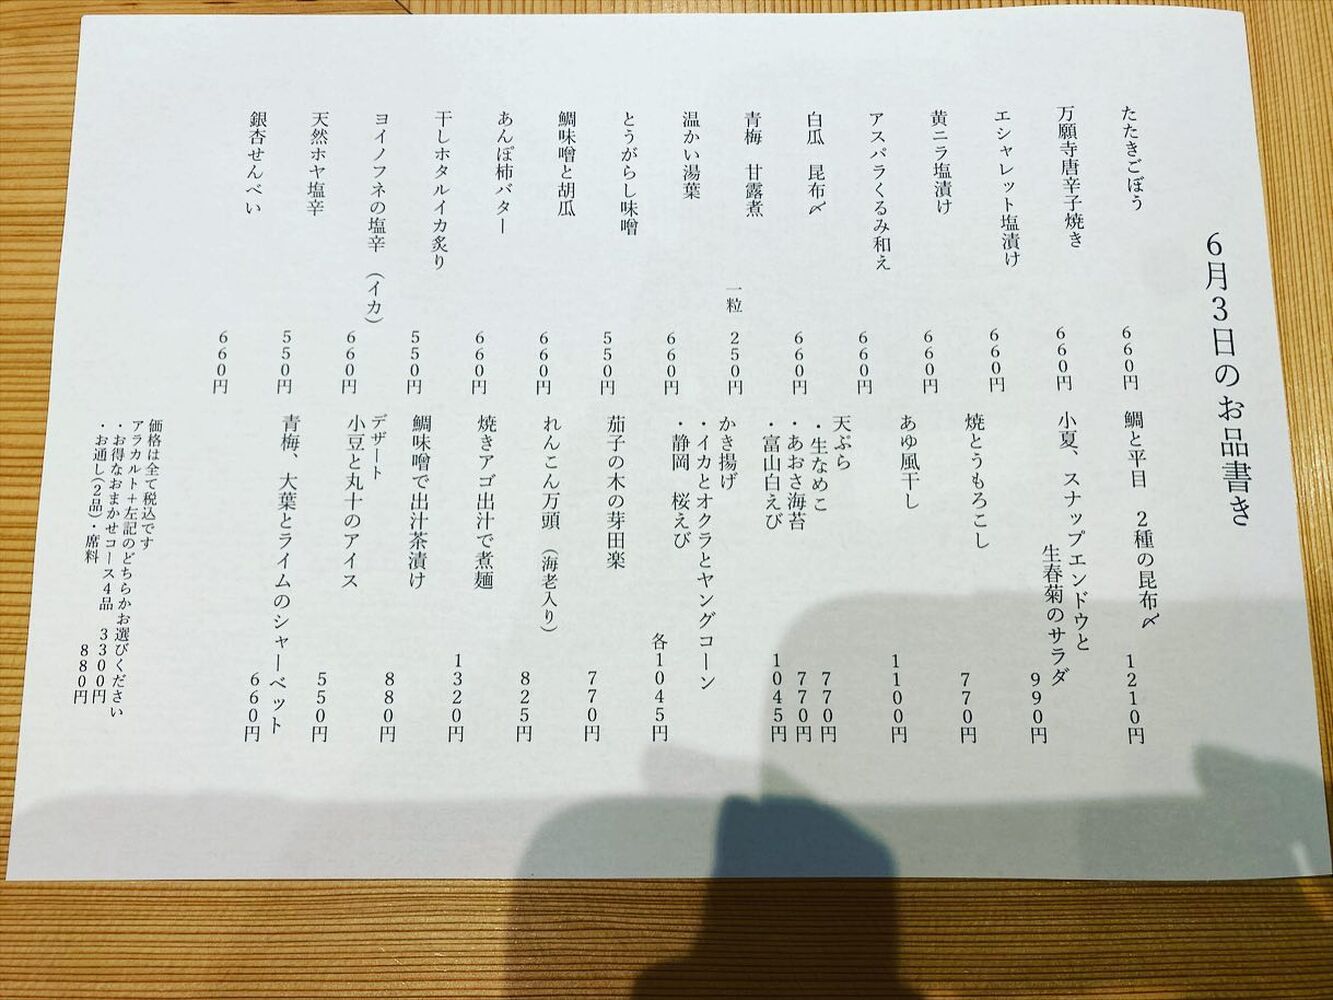 6月3日のお品書き
たたきごぼう 660円
万願寺唐辛子焼き 660円
エシャレット塩漬け 660円
黄ニラ塩漬け 660円
アスパラくるみ和え 660円
白瓜 昆布〆 660円
青梅 甘露煮 一粒 250円
温かい湯葉 660円
とうがらし味噌 550円
鯛味噌と胡瓜 660円
あんぽ柿バター 660円
干しホタルイカ炙り 550円
ヨイノフネの塩辛 (イカ) 660円
天然ホヤ塩辛 550円
銀杏せんべい 660円
鯛と平目 2種の昆布〆 1210円
小夏、スナップエンドウと
生春菊のサラダ 990円
焼とうもろこし 770円
あゆ風干し 1100円
天ぷら
・生なめこ 770円
・あおさ海苔 770円
・富山白えび 1045円
かき揚げ
・イカとオクラとヤングコーン
・静岡 桜えび 各1045円
茄子の木の芽田楽 770円
れんこん万頭 (海老入り) 825円
焼きアゴ出汁で煮麺 1320円
鯛味噌で出汁茶漬け 880円
デザート
小豆と丸十のアイス 550円
青梅、大葉とライムのシャーベット 660円
価格は全て税込です
アラカルト+左記のどちらかお選びください
・お得なおまかせコース4品 3300円
・お通し(2品)・席料 880円